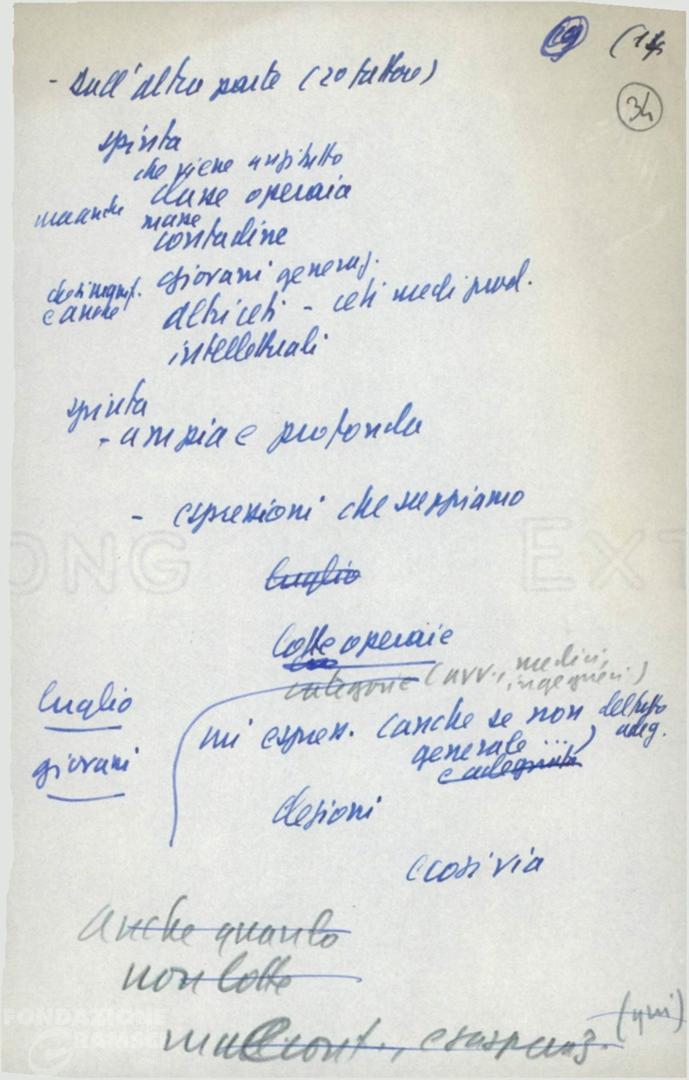 (14
34
- Dall'altra parte (2o fattore)
spinta
che viene anzitutto
classe operaia
ma anche masse
contadine
giovani generaz.
e anche altri ceti - ceti medi prod.
intellettuali
spinta
- ampia e profonda
- espressioni che sappiamo
luglio
lotte operaie
categorie (avv., medici,
ingegneri)
luglio
giovani
in espress. (anche se non del tutto
generale ...) adeg.
e adeguata
elezioni
e così via
anche quando
non lotte
malcont., esasperaz. (qui)
FONDAZIONE
GRAMSCI